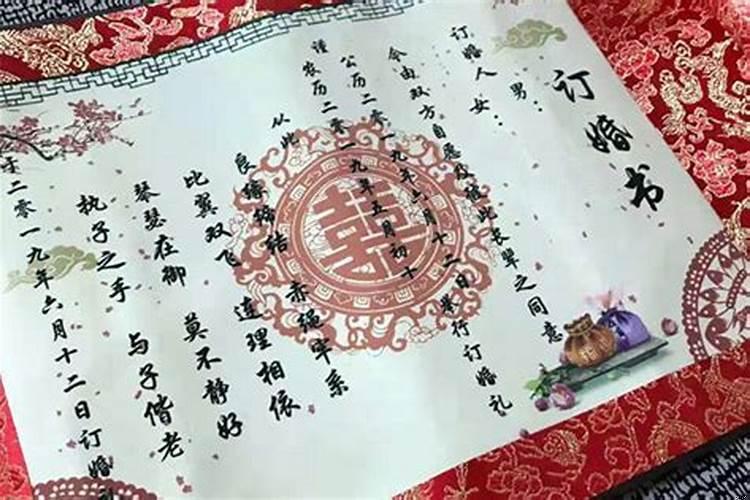 订婚书
男：
订婚人女：
今由双方自愿及 彼此长辈之同意
谨 公历二零一九年六月十二日举行订婚礼
农历二零一九年五月初十
从此 赤绳牢系
良缘缔结 连理相依
比翼双飞 莫不静好
琴瑟在御 与子偕老
执子之手
于二零一九年六月十二日订婚